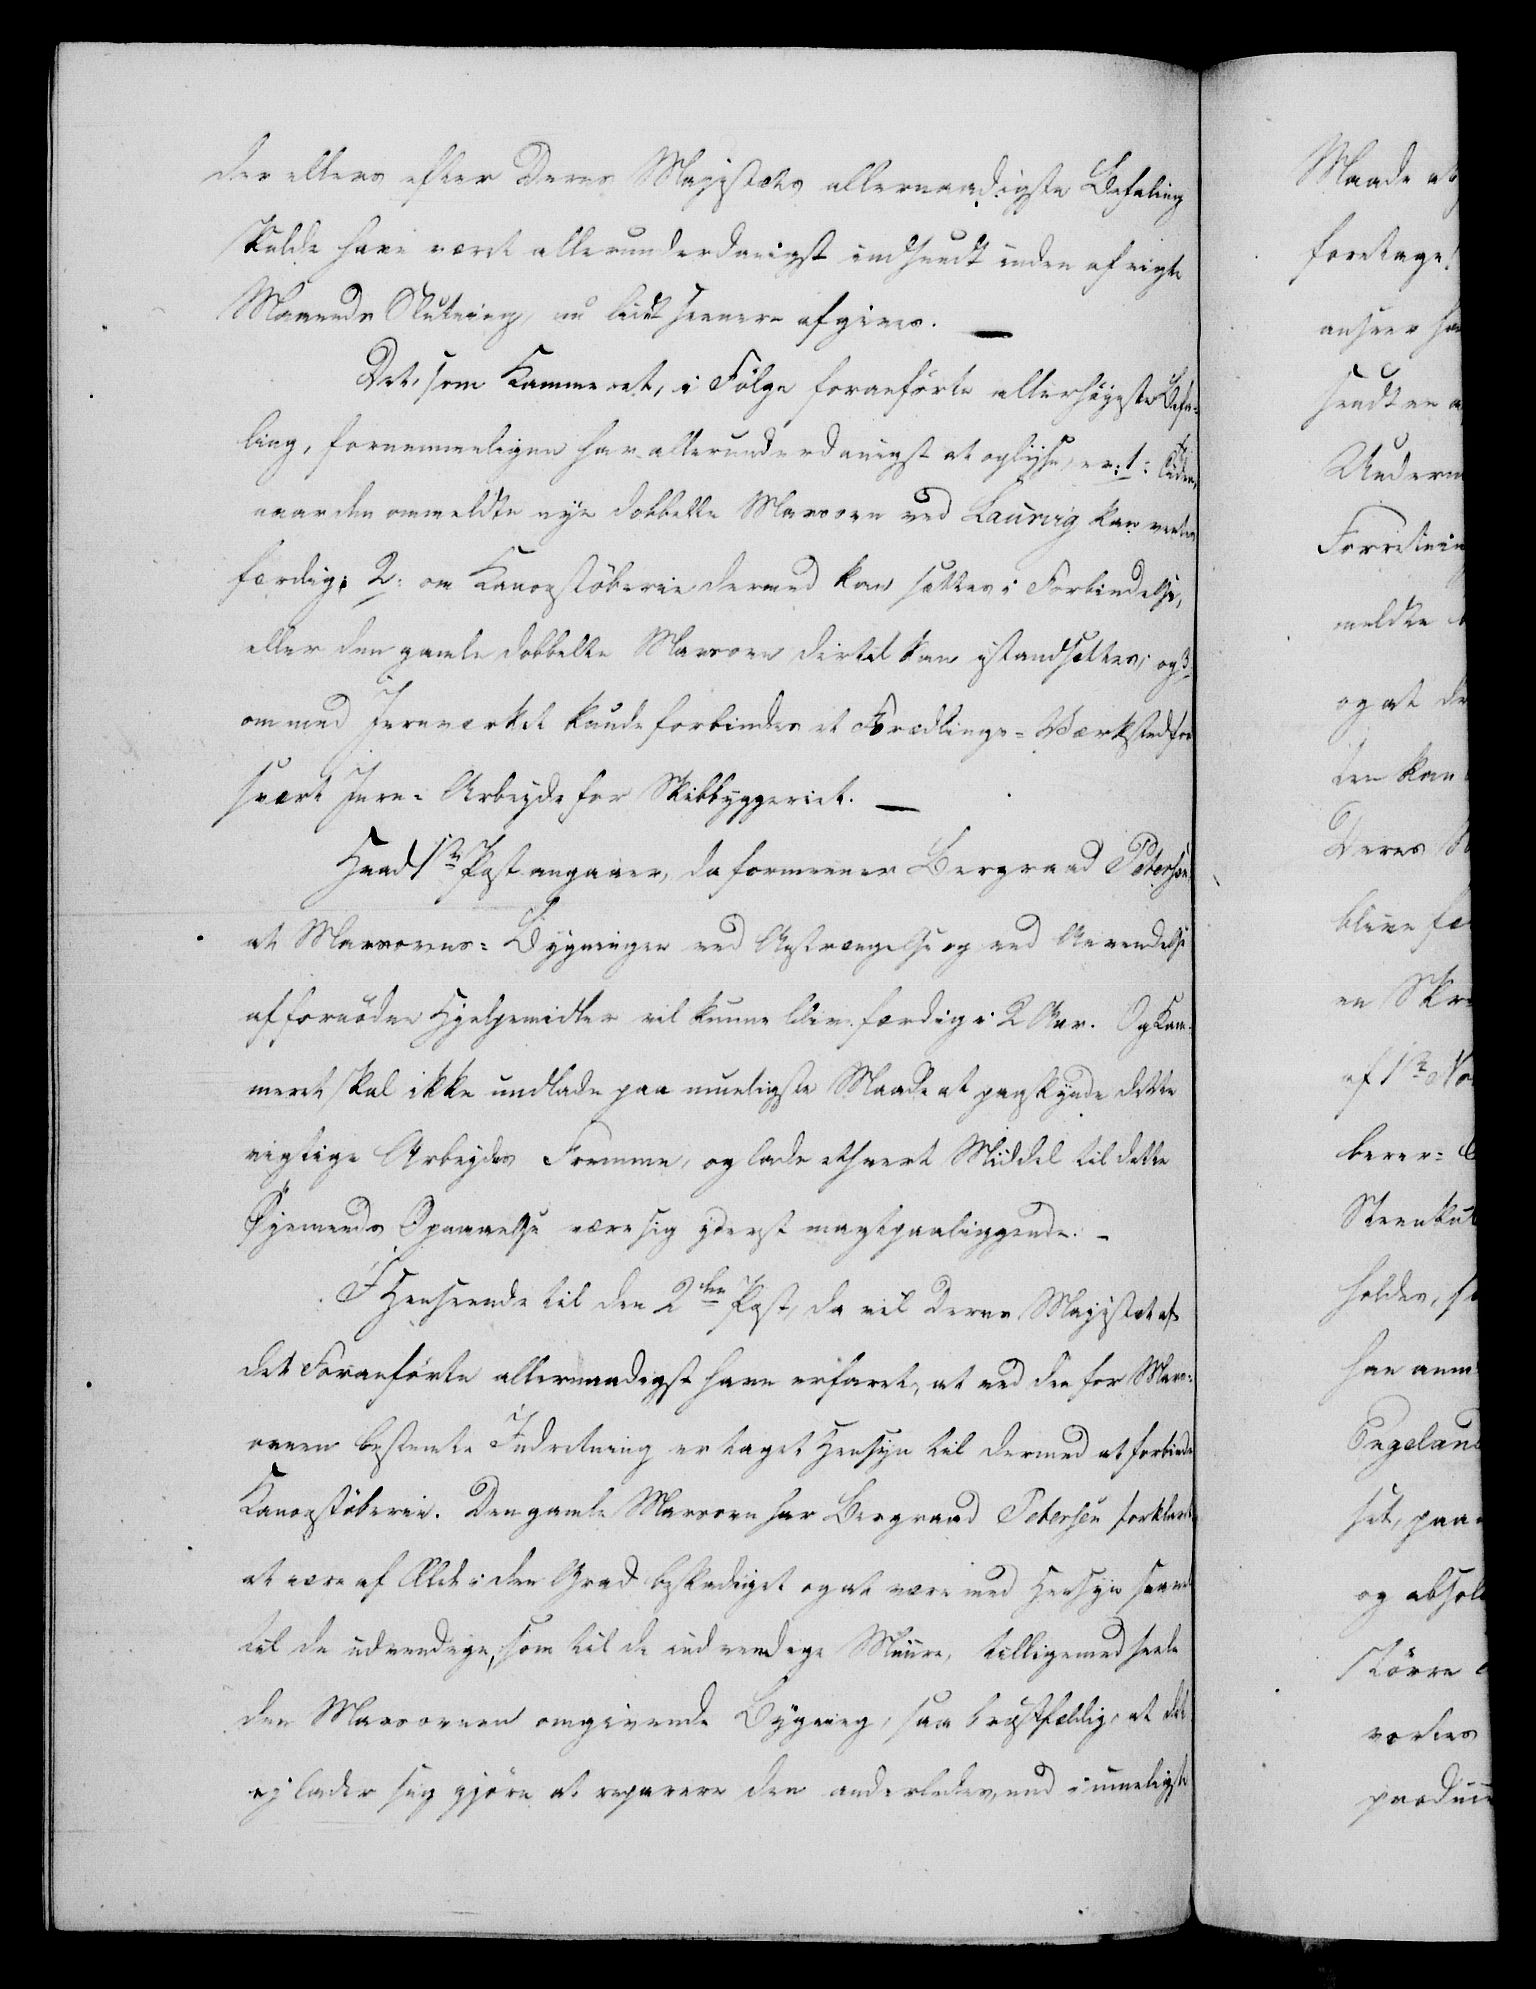 der ellers efter Deres Majestæts allernaadigste Befaling
skulde have været allerunderdanigst indsendt inden afvigte
Maaneds Slutning, nu lidt senere afgives. —
Det, som Kammeret, i Følge foranførte allerhøyeste Befa-
ling, fornemmeligen har allerunderdanigst at oplyse, er: 1: Tiden,
naar den ommeldte nye dobbelte Masovn ved Laurvig kan ventes
færdig; 2: om Kanonstøberie dermed kan sættes i Forbindelse,
eller den gamle dobbelte Masovn dertil kan istandsættes; og 3
om med Jernværket kunde forbindes et Forædlings-Værksted for
svært Jern-Arbeyde for Skibbyggeriet. —
Hvad 1ste Post angaaer, da formener Bergraad Petersen,
at Masovns-Bygningen ved Anstrængelse og ved Anvendelse
af fornødne Hjelpemidler vil kunne blive færdig i 2 Aar. Og Kam-
meret skal ikke undlade paa mueligste Maade at paaskynde dette
vigtige Arbeydes Fremme, og lade ethvert Middel til dette
Øyemeds Opnaaelse være sig yderst magtpaaliggende. -
I Henseende til den 2den Post, da vil Deres Majestæt af
det Foranførte allernaadigst have erfaret, at ved den for Mas-
ovnen bestemte Indretning er taget Hensyn til dermed at forbinde
Kanonstøberie. Den gamle Masovn har Bergraad Petersen forklaret
at være af Ælde i den Grad beskadiget og at være med Hensyn saavel
til de udvendige, som til de indvendige Muure, tilligemed hele
den Masovnen omgivende Bygning, saa brøstfældig, at det
ej lader sig gjøre at reparere den anderledes, end i mueligste
Maade at
foretage
ansees
sendt en
Underm
Forretnin
meldte
og at de
ten kan
Deres
blive fær
en Skr
af 1ste No
berer-
Steenkul
holdes,
han anm
Engeland
set, paa
og absol
større
vortes
produc